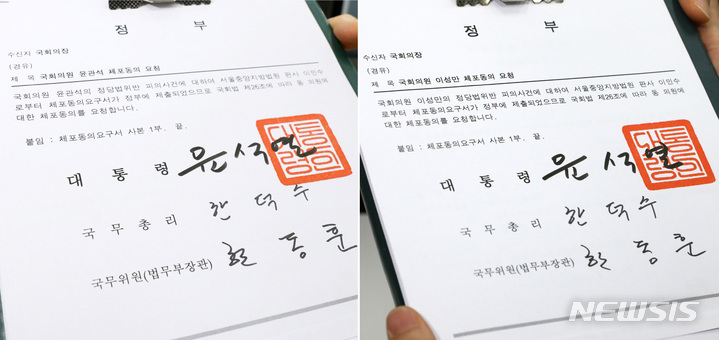 정 부
수신자 국회의장
(경유)
제 목 국회의원 윤관석 체포동의 요청
국회의원 윤관석의 정당법위반 피의사건에 대하여 서울중앙지방법원 판사 이민수
로부터 체포동의요구서가 정부에 제출되었으므로 국회법 제26조에 따라 동 의원에
대한 체포동의를 요청합니다.
붙임 : 체포동의요구서 사본 1부. 끝.
대통령 윤석열
대통령의인
국무총리 한덕수
국무위원(법무부장관) 한동훈
정 부
수신자 국회의장
(경유)
제 목 국회의원 이성만 체포동의 요청
국회의원 이성만의 정당법위반 피의사건에 대하여 서울중앙지방법원 판사 이민수
로부터 체포동의요구서가 정부에 제출되었으므로 국회법 제26조에 따라 동 의원에
대한 체포동의를 요청합니다.
붙임 : 체포동의요구서 사본 1부. 끝.
대통령 윤석열
대통령의인
국무총리 한덕수
국무위원(법무부장관) 한동훈
NEWSIS